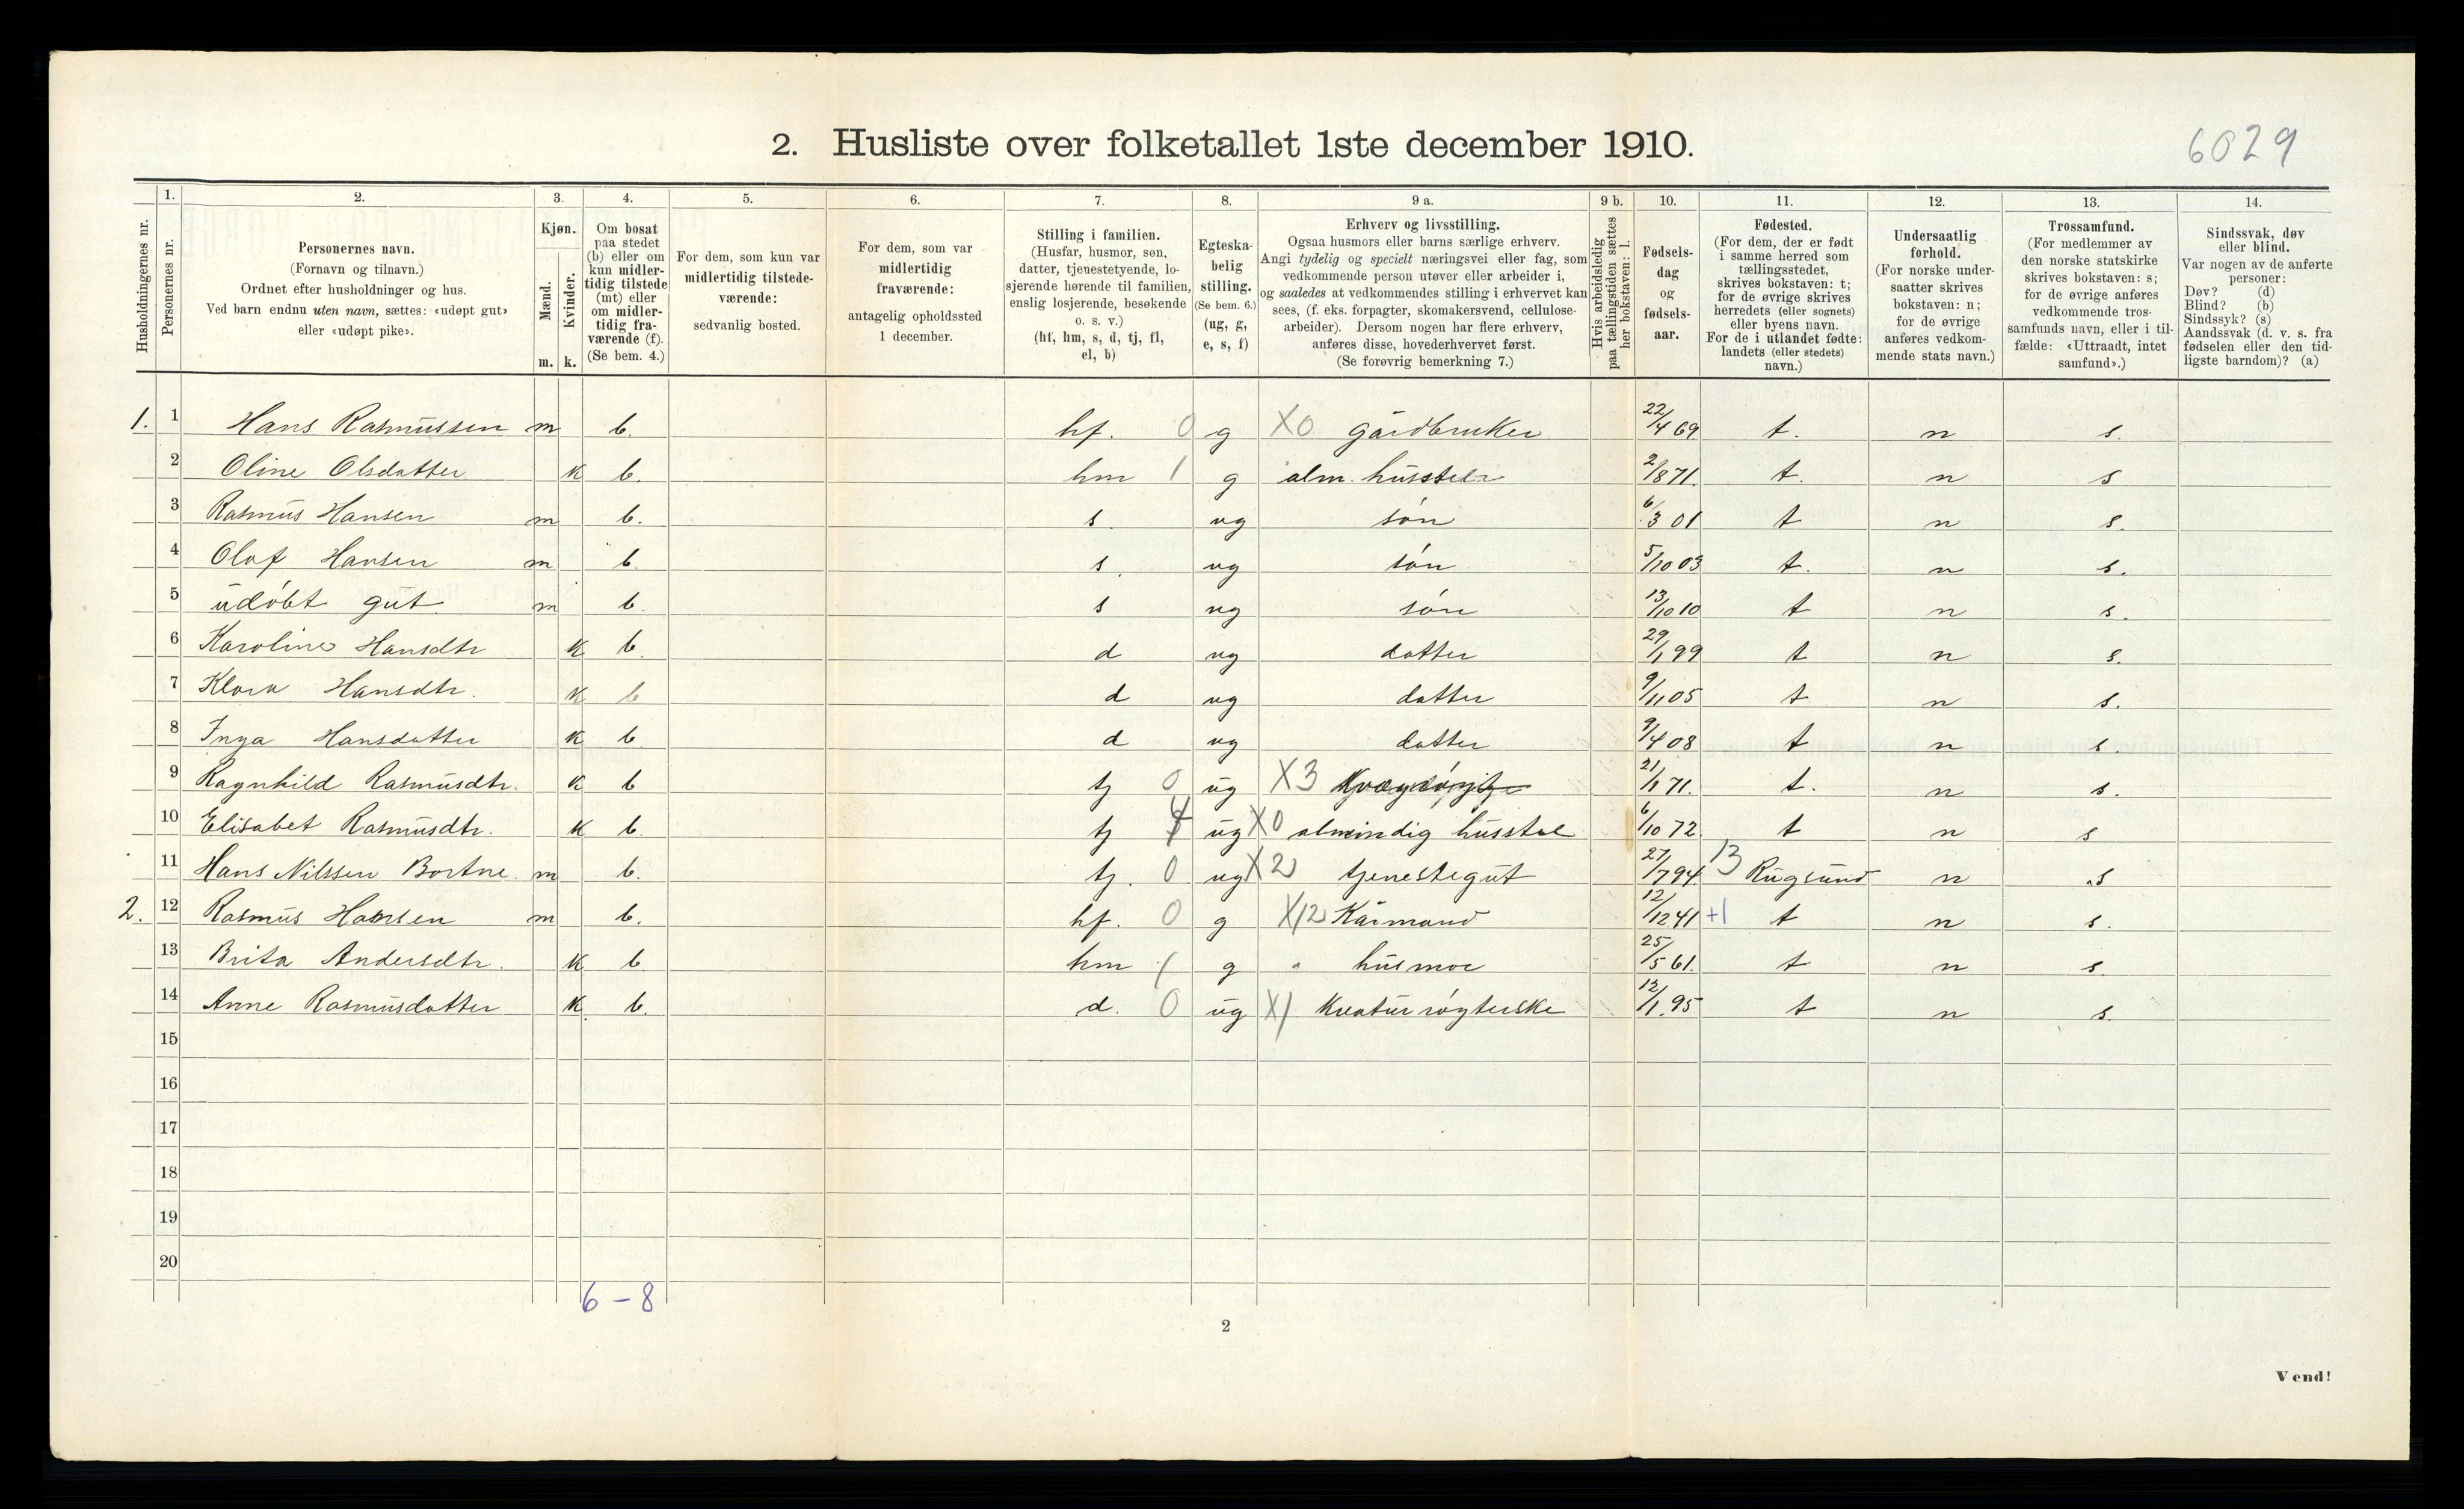 2. Husliste over folketallet 1ste december 1910.
6029
Husholdningernes nr.
1.
Personernes nr.
2.
Personernes navn.
(Fornavn og tilnavn.)
Ordnet efter husholdninger og hus.
Ved barn endnu uten navn, sættes: «udøpt gut»
eller «udøpt pike».
3.
Kjøn.
Mænd.
Kvinder.
m. k.
4.
Om bosat
paa stedet
(b) eller om
kun midler-
tidig tilstede
(mt) eller
om midler-
tidig fra-
værende (f).
(Se bem. 4.)
5.
For dem, som kun var
midlertidig tilstede-
værende:
sedvanlig bosted.
6.
For dem, som var
midlertidig
fraværende:
antagelig opholdssted
1 december.
7.
Stilling i familien.
(Husfar, husmor, søn,
datter, tjenestetyende, lo-
sjerende hørende til familien,
enslig losjerende, besøkende
o. s. v.)
(hf, hm, s, d, tj, fl,
el, b)
8.
Egteska-
belig
stilling.
(Se bem. 6.)
(ug, g,
e, s, f)
9 a.
Erhverv og livsstilling.
Ogsaa husmors eller barns særlige erhverv.
Angi tydelig og specielt næringsvei eller fag, som
vedkommende person utøver eller arbeider i,
og saaledes at vedkommendes stilling i erhvervet kan
sees, (f. eks. forpagter, skomakersvend, cellulose-
arbeider). Dersom nogen har flere erhverv,
anføres disse, hovederhvervet først.
(Se forøvrig bemerkning 7.)
9 b.
Hvis arbeidsledig
paa tællingstiden sættes
her bokstaven: l.
10.
Fødsels-
dag
og
fødsels-
aar.
11.
Fødested.
(For dem, der er født
i samme herred som
tællingsstedet,
skrives bokstaven: t;
for de øvrige skrives
herredets (eller sognets)
eller byens navn.
For de i utlandet fødte:
landets (eller stedets)
navn.)
12.
Undersaatlig
forhold.
(For norske under-
saatter skrives
bokstaven: n;
for de øvrige
anføres vedkom-
mende stats navn.)
13.
Trossamfund.
(For medlemmer av
den norske statskirke
skrives bokstaven: s;
for de øvrige anføres
vedkommende tros-
samfunds navn, eller i til-
fælde: «Uttraadt, intet
samfund».)
14.
Sindssvak, døv
eller blind.
Var nogen av de anførte
personer:
Døv? (d)
Blind? (b)
Sindssyk? (s)
Aandssvak (d. v. s. fra
fødselen eller den tid-
ligste barndom)? (a)
1. 1 Hans Rasmussen m b. hf. 0 g X0 gårdbruker 22/4 69 t. n s.
2 Oline Olsdatter k b. hm 1 g alm. husstel 2/8 71. t. n s
3 Rasmus Hansen m b. s. ug søn 6/3 01 t n s.
4 Olaf Hansen m b. s. ug søn 5/10 03 t. n s.
5 udøbt gut m b. s ug søn 13/10 10 t n s.
6 Karoline Hansdtr k b. d ug datter 29/1 99 t n s.
7 Klara Hansdtr. k b d ug datter 9/11 05 t n s.
8 Inga Hansdatter k b d ug datter 9/4 08 t n s.
9 Ragnhild Rasmusdtr. k b tj 0 ug X3 21/1 71. t. n s.
10 Elisabet Rasmusdtr. k b. tj ug X0 almindig husstel 6/10 72 t n s
11 Hans Nilssen Bortne. m b. tj. 0 ug X2 tjenestegut 27/7 94. 13 Rugsund n s
2. 12 Rasmus Hansen m b. hf. 0 g X12 Kårmand 12/12 41 +1 t n s.
13 Brita Andersdtr. k b hm 1 g " husmor 25/5 61. t n s.
14 Anne Rasmusdatter k b. d. 0 ug X1 Kreatur røgterske 12/1 95 t n s.
15
16
17
18
19
20
6 – 8
2
Vend!